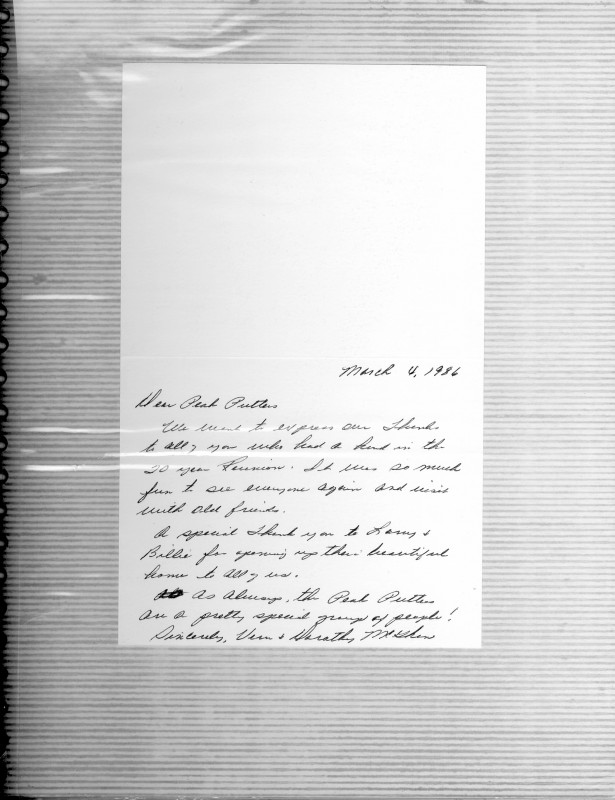 March 4, 1986
Dear Peak Putters
We want to express our Thanks
to all of you who had a hand in the
20 year Reunion. It was so much
fun to see everyone again and visit
with old friends.
A special Thank you to Larry &
Billie for opening up their beautiful
home to all of us.
As Always, the Peak Putters
are a pretty special group of people!
Sincerely, Vern & Dorothy